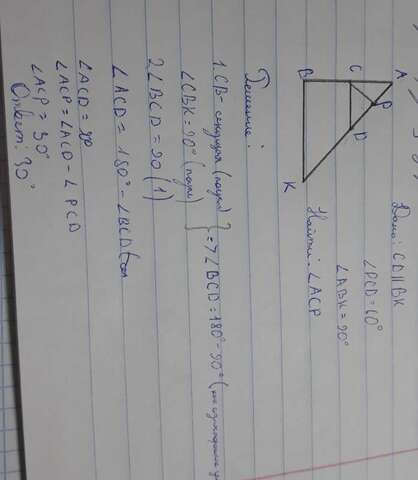 A
P
C
D
B
K
Дано: CD||BK
∠PCD=60°
∠ABK=90°
Найти: ∠ACP
Решение:
1. CB- секущая (по усл) } => ∠BCD=180°-90° (как односторонние
∠CBK=90° (по усл)
2 ∠BCD=90 (1)
∠ACD = 180° - ∠BCD (см
∠ACD = 90
∠ACP = ∠ACD - ∠PCD
∠ACP = 30°
Ответ: 30°